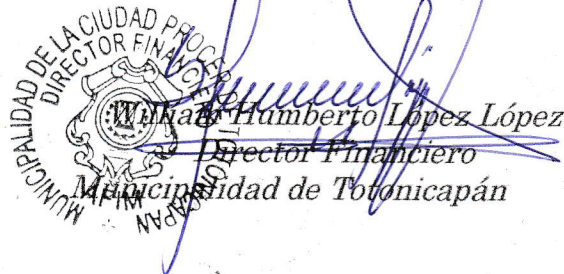 MUNICIPALIDAD DE LA CIUDAD PROCER
DIRECTOR FINANCIE
William Humberto López López
Director Financiero
Municipalidad de Totonicapán